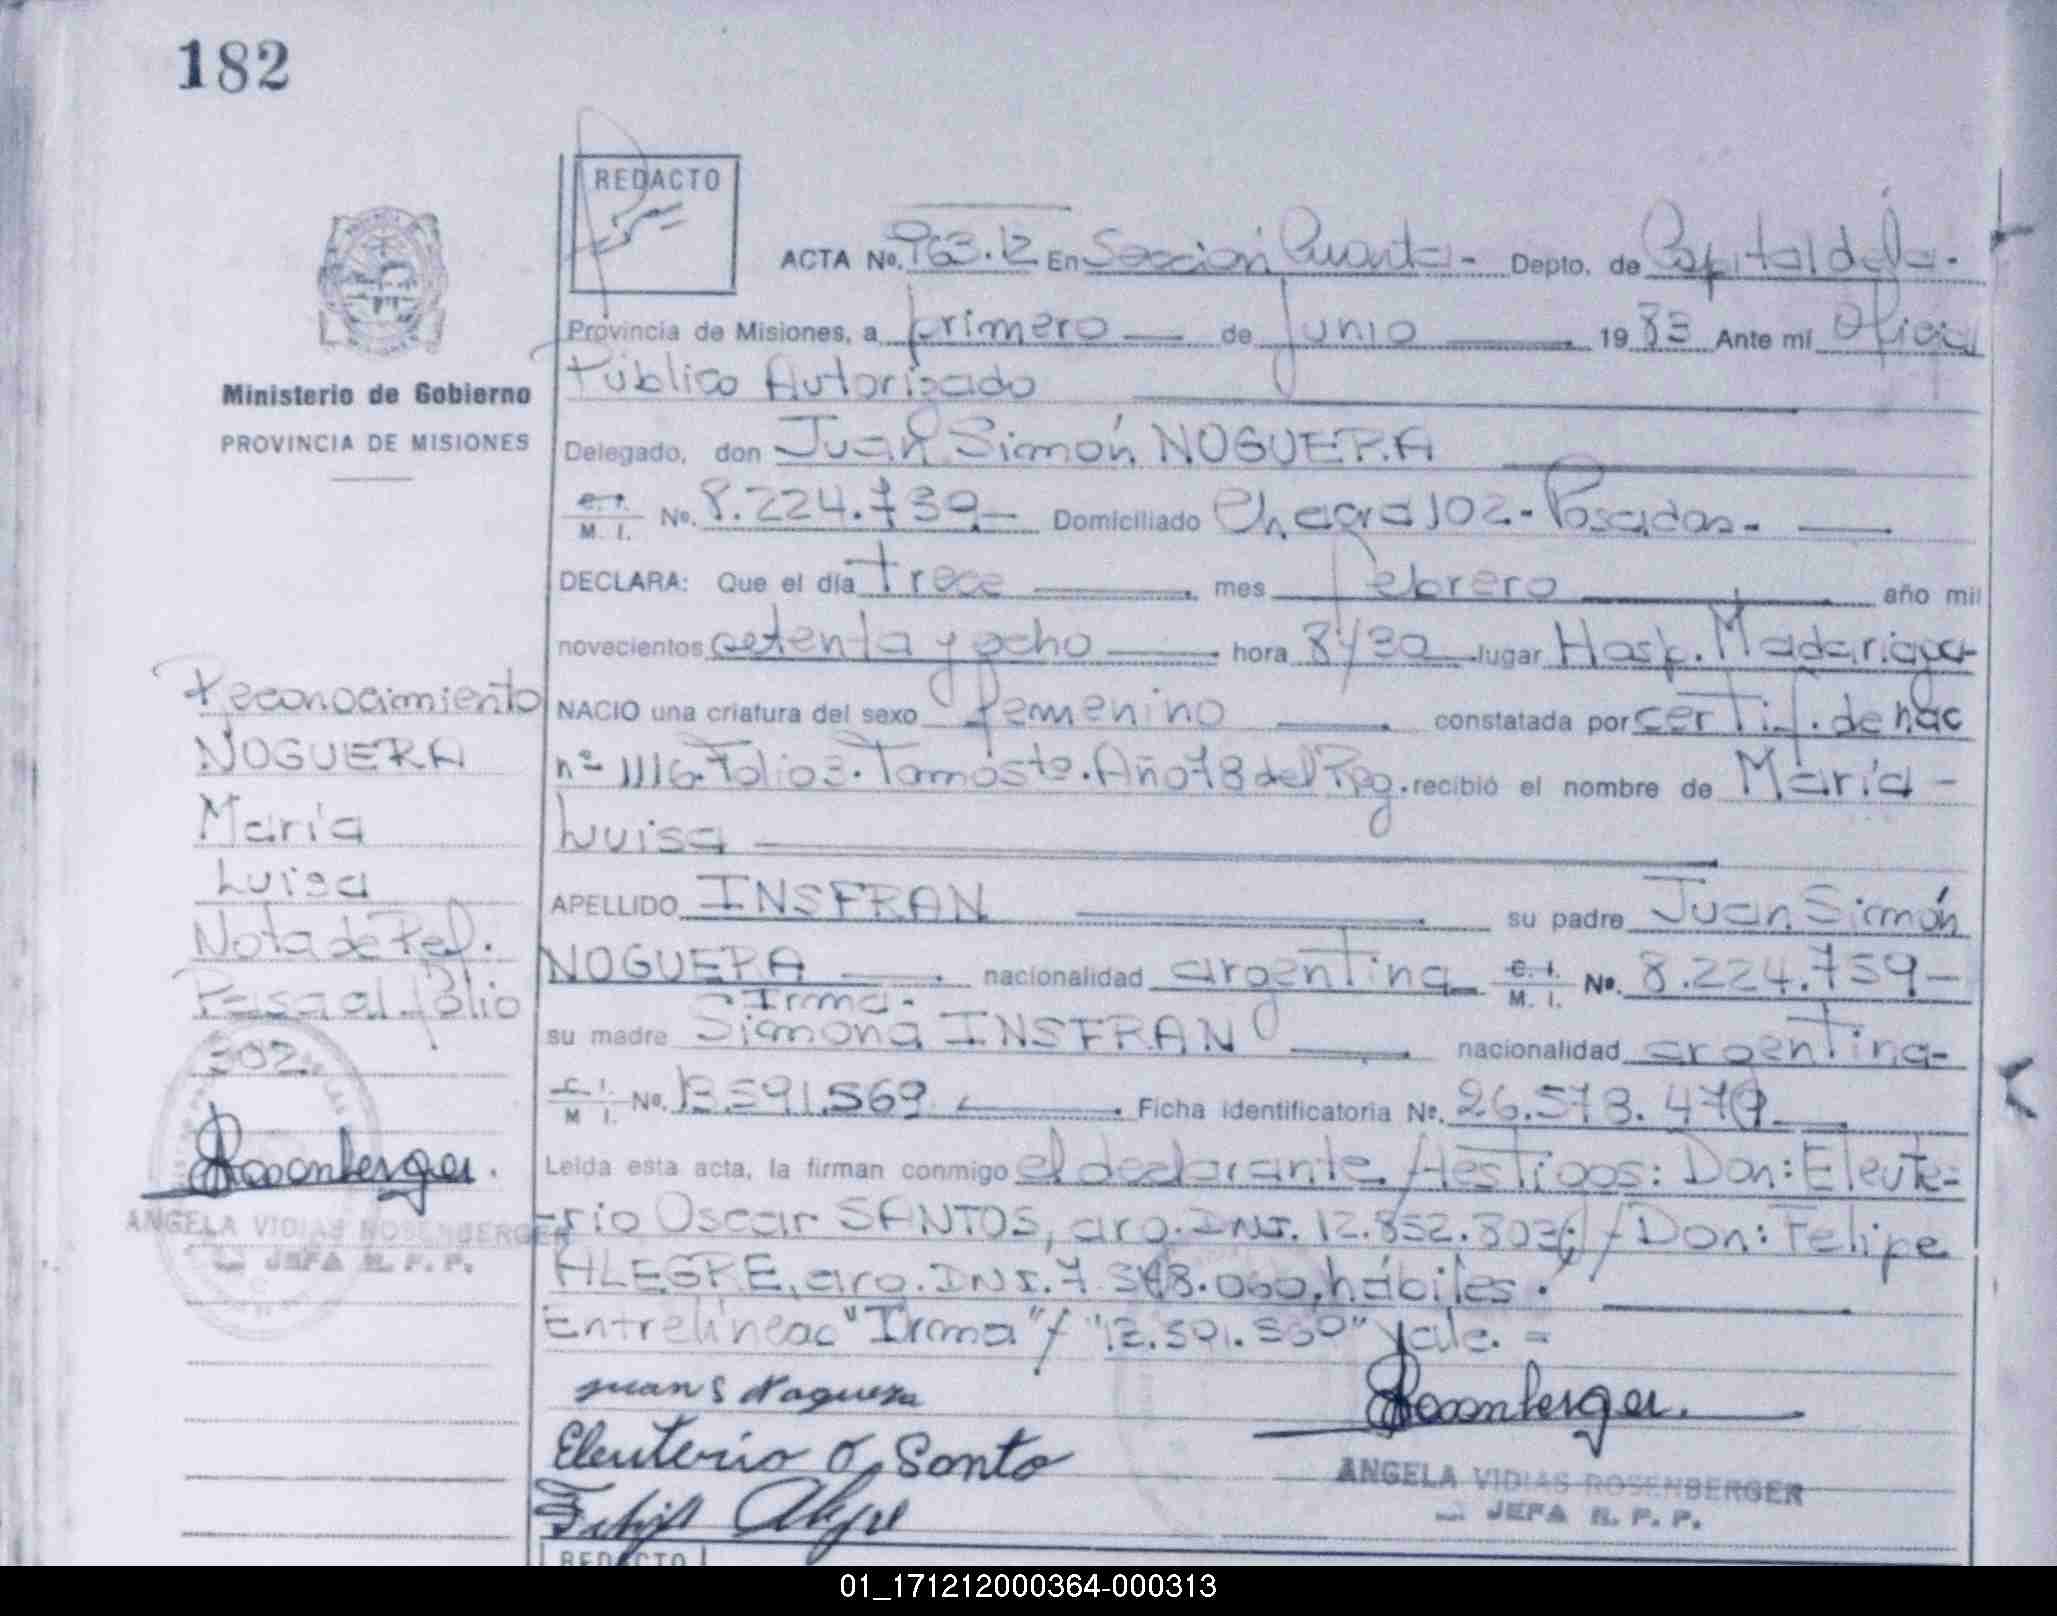 182
REDACTO
ACTA No. 963.12 En Sección Cuarta - Depto. de Capital de la -
Provincia de Misiones, a primero de Junio 1983 Ante mí Oficial
Público Autorizado
Ministerio de Gobierno
PROVINCIA DE MISIONES
Delegado, don Juan Simón NOGUERA
C. I. M. I. No. 8.224.739 - Domiciliado Chacra 102 - Posadas -
DECLARA: Que el día trece mes febrero año mil
novecientos setenta y ocho hora 8y30 lugar Hosp. Madariaga
NACIO una criatura del sexo femenino constatada por certif. de nac
nº 1116. Folio 3. Tomo 5to. Año 78 del Reg. recibió el nombre de María -
Luisa
APELLIDO INSFRAN su padre Juan Simón
NOGUERA nacionalidad argentina C. I. M. I. No. 8.224.759 -
Irma -
su madre Simona INSFRAN nacionalidad argentina -
C. I. M I. No. 13.591.569 Ficha identificatoria No. 26.578.479
Leída esta acta, la firman conmigo el declarante / testigos: Don: Eleute=
-rio Oscar SANTOS, arg. DNI. 12.852.803 / Don: Felipe
ALEGRE, arg. DNI. 7.548.060, hábiles.
Entrelíneas "Irma" / Vale. =
Reconocimiento
NOGUERA
María
Luisa
Nota de Ref.
Pasa al folio
302
Rosenberger.
ANGELA VIDIAS ROSENBERGER
JEFA R. P. P.
Juan S Noguera
Eleuterio O. Santo
Felipe Alegre
Rosenberger.
ANGELA VIDIAS ROSENBERGER
JEFA R. P. P.
REDACTO
01_171212000364-000313